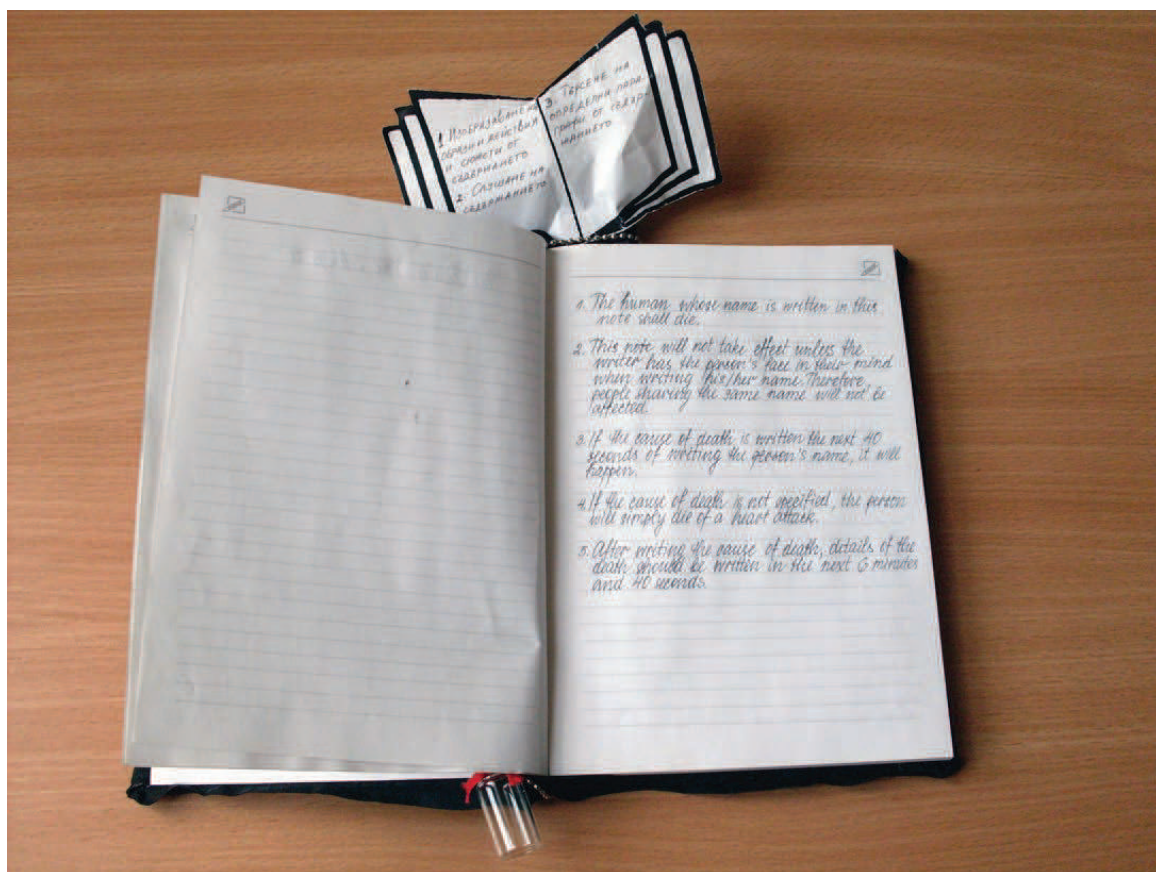 1. Изобразяване на
образи и действия
и сюжети от
съдържанието
2. Слушане на
съдържанието
3. Търсене на
определени пара-
графи от съдър-
жанието
1. The human whose name is written in this
note shall die.
2. This note will not take effect unless the
writer has the person's face in their mind
when writing his/her name. Therefore
people sharing the same name will not be
affected.
3. If the cause of death is written the next 40
seconds of writing the person's name, it will
happen.
4. If the cause of death is not specified, the person
will simply die of a heart attack.
5. After writing the cause of death, details of the
death should be written in the next 6 minutes
and 40 seconds.